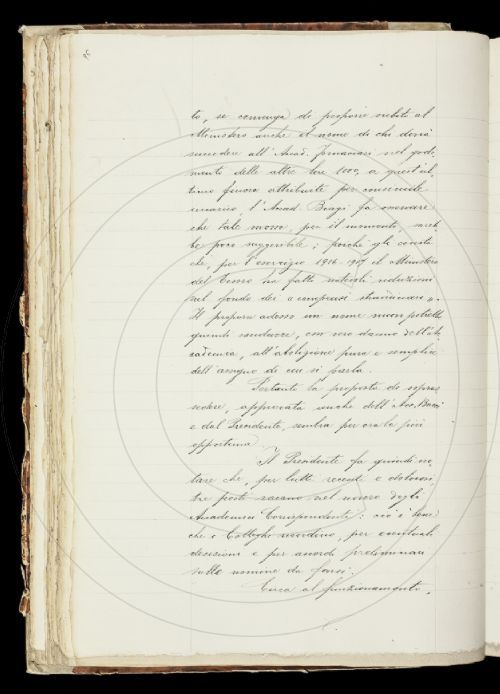 to, se convenga di proporre subito al
Ministero anche il nome di chi dovrà
succedere all'Accad. nel godi-
mento delle altre lire 1000, a quest'ul-
timo finora attribuite per
, l'Accad. Biagi fa osservare
che tale mossa, per il momento, sareb-
be poco suggeribile; poichè gli consta
che, per l'esercizio 1916-917 il Ministero
del Tesoro ha fatto notevoli riduzioni
nel fondo dei "compensi straordinari".
Il proporre adesso un nome nuovo potrebbe
quindi condurre, con vero danno dell'Ac-
cademia, all'abolizione pura e semplice
dell'assegno di cui si parla.
Pertanto la proposta di sopras-
sedere, approvata anche dall'Acc. Bacci
e dal Presidente, sembra per ora la più
opportuna.
Il Presidente fa quindi no-
tare che, per lutti recenti e dolorosi,
tre posti vacano nel novero degli
Accademici Corrispondenti: ciò è bene
che i Colleghi ricordino, per eventuali
decisioni e per accordi preliminari
sulle nomine da farsi.
Circa al funzionamento